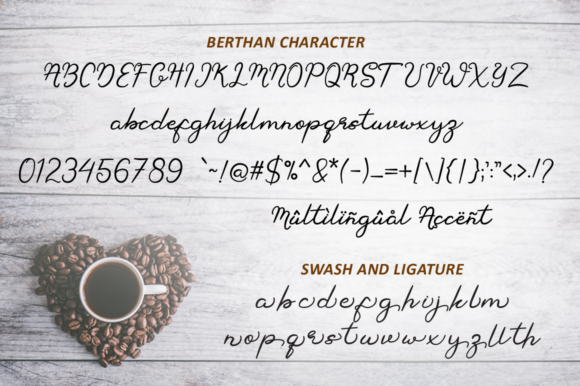 BERTHAN CHARACTER
ABCDEFGHIJKLMNOPQRSTUVWXYZ
abcdefghijklmnopqrstuvwxyz
0123456789 `~!@#$%^&*(-)_=+[\]{|};':"<,>./?
Mûltilïñgûål Ascëñt
SWASH AND LIGATURE
abcdefghijklm
nopqrstuvwxyzllth